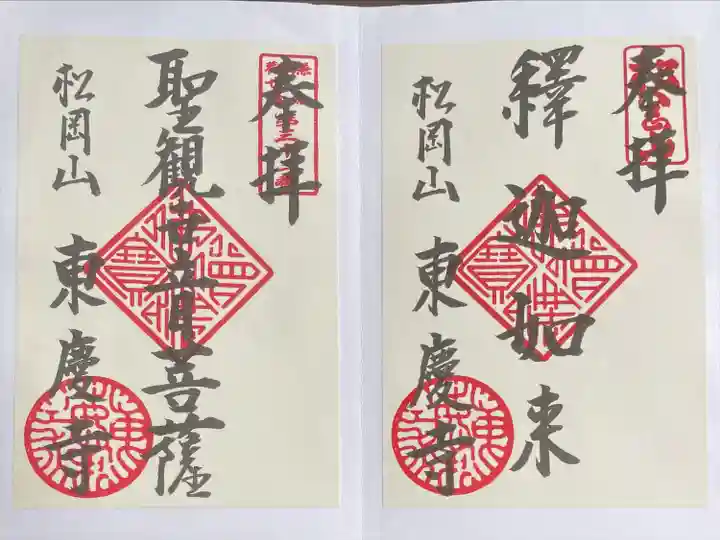 奉拝
釋迦如来
松岡山 東慶寺
奉拝
聖観世音菩薩
松岡山 東慶寺